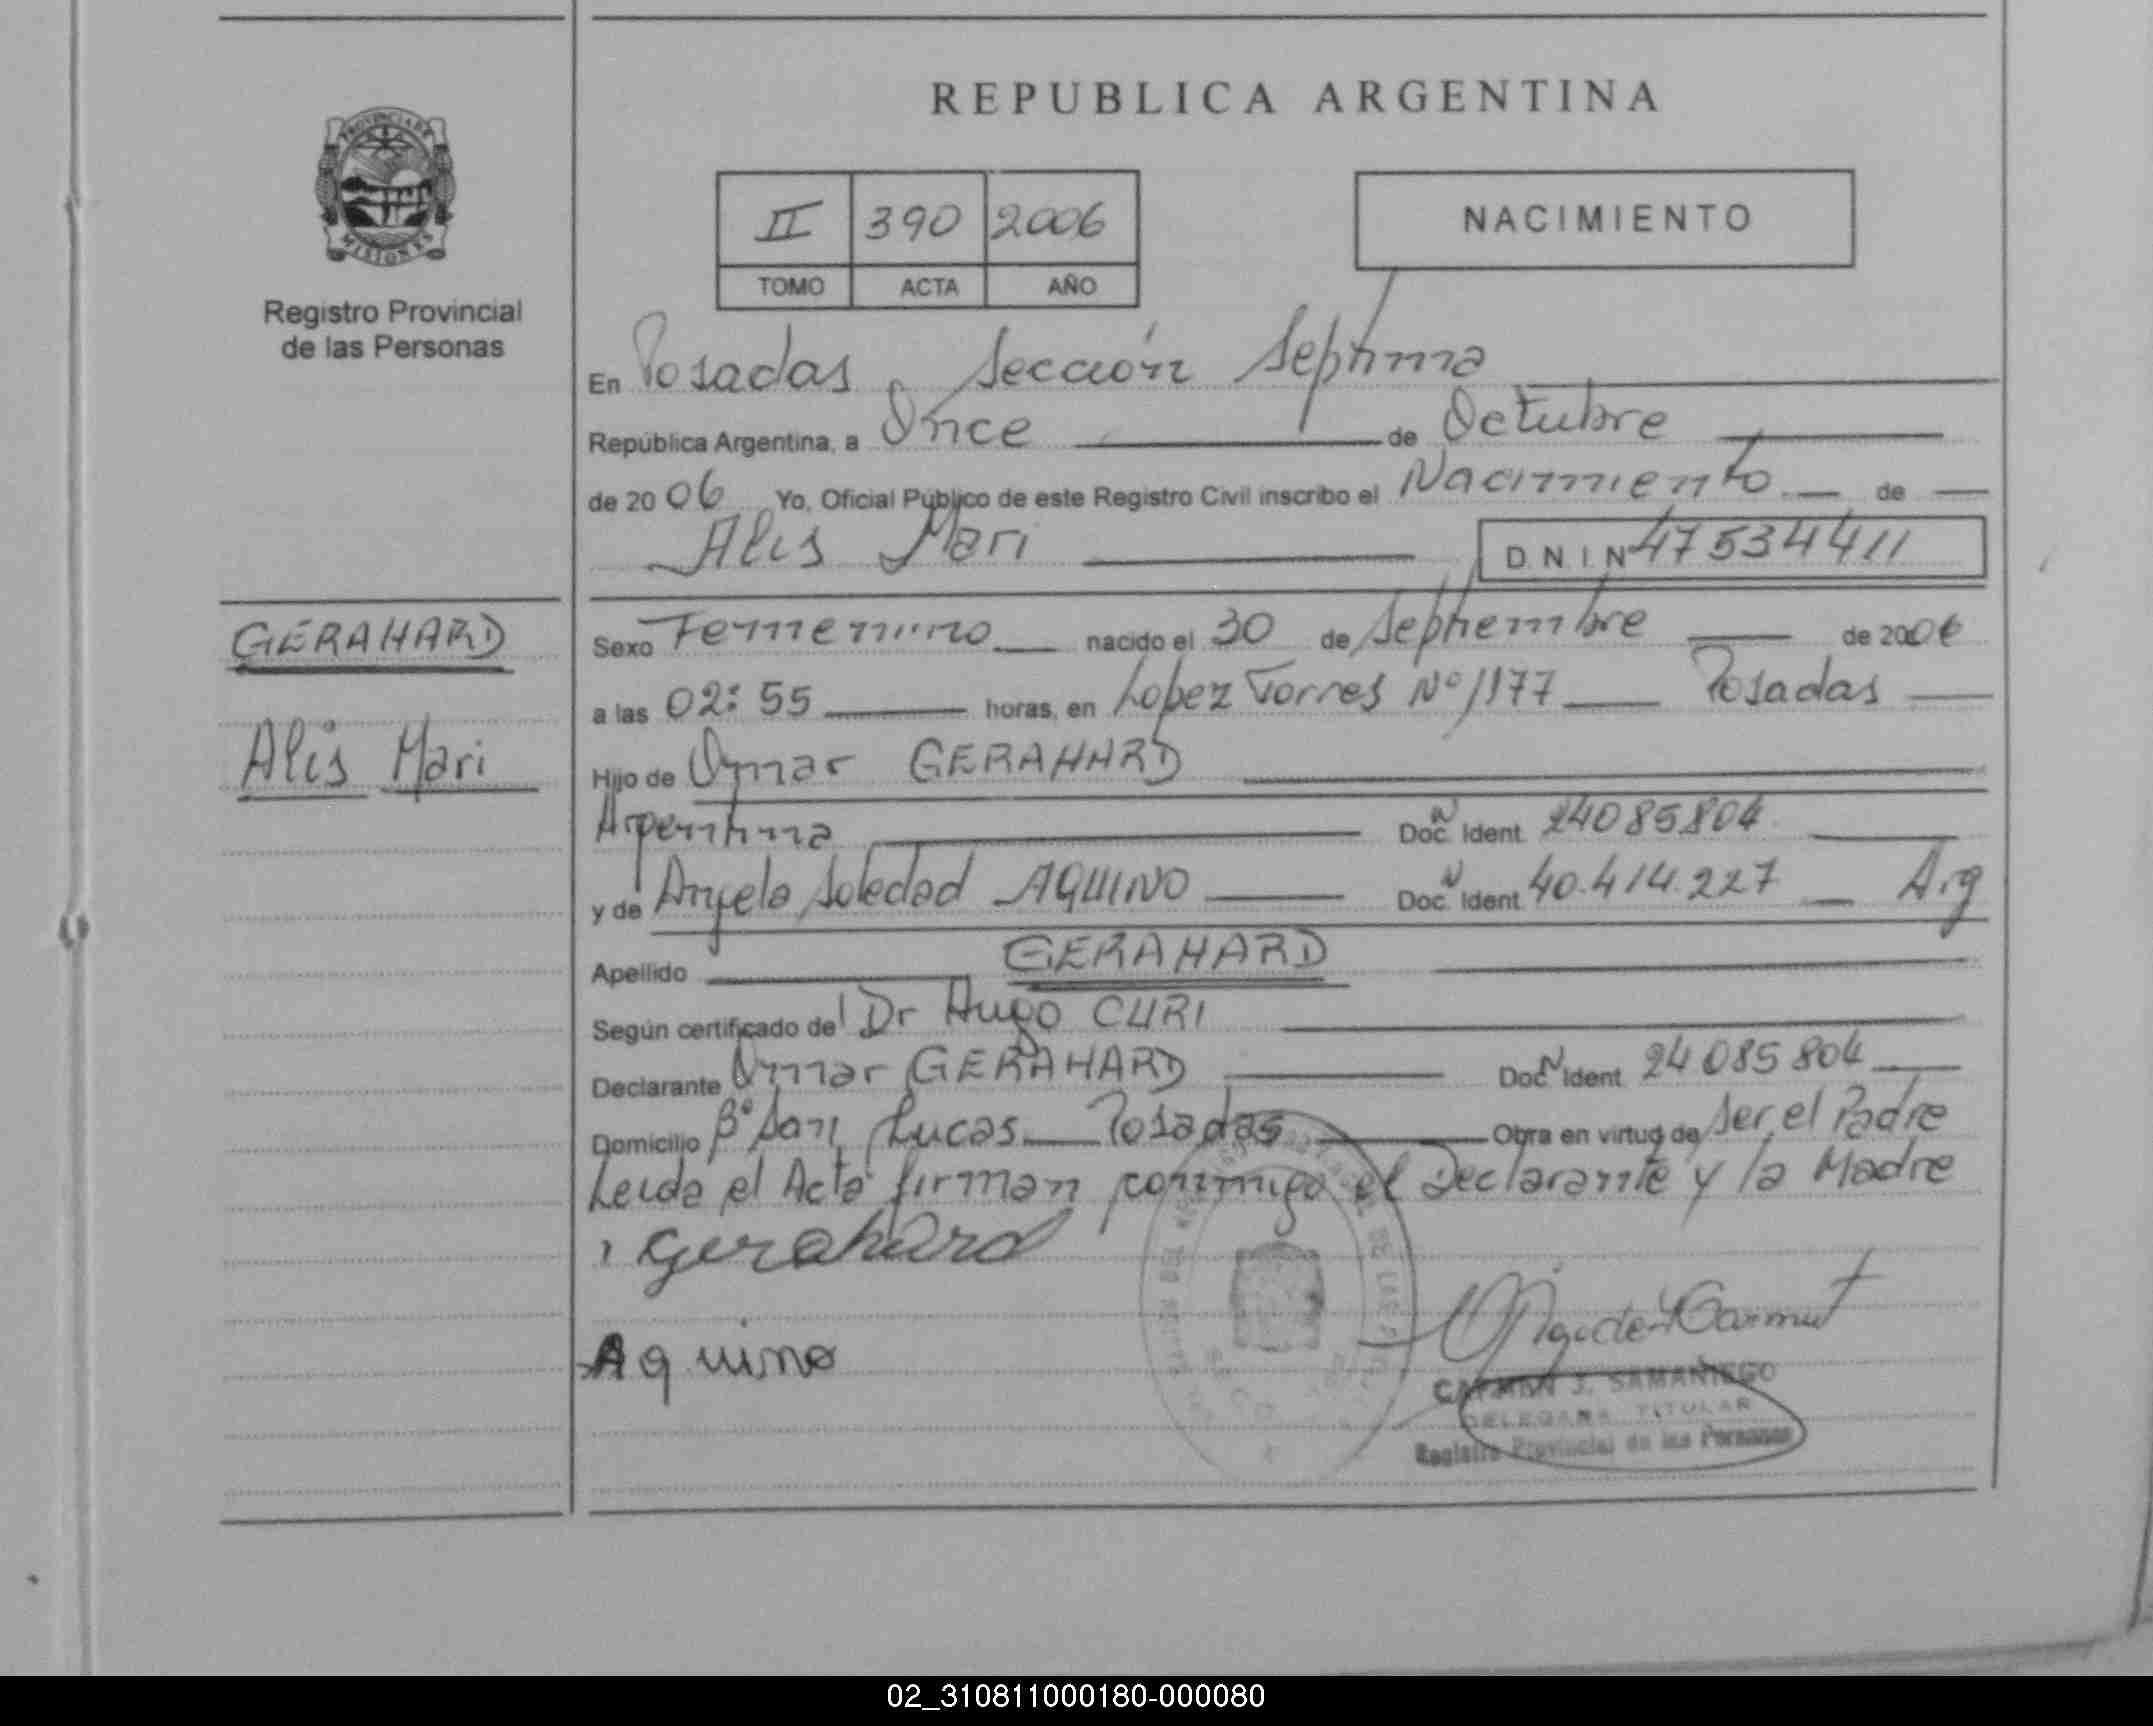 REPUBLICA ARGENTINA
PROVINCIA DE
MISIONES
Registro Provincial
de las Personas
II 390 2006
TOMO ACTA AÑO
NACIMIENTO
En Posadas, Sección Séptima
República Argentina, a Once de Octubre
de 2006 Yo, Oficial Público de este Registro Civil inscribo el Nacimiento de
Alis Mari
D.N.I.N 47534411
GERAHARD
Alis Mari
Sexo Femenino nacido el 30 de Septiembre de 2006
a las 02:55 horas, en Lopez Torres Nº 1177 Posadas
Hijo de Omar GERAHARD
Argentina Doc. N Ident. 24085804
y de Angela Soledad AQUINO Doc. N Ident. 40.414.227 Arg
Apellido GERAHARD
Según certificado del Dr Hugo CURI
Declarante Omar GERAHARD Doc N Ident. 24085804
Domicilio Bº San Lucas Posadas Obra en virtud de Ser el Padre
Leida el Acta firman conmigo el Declarante y la Madre
Gerahard
Aquino
CARMEN J. SAMANIEGO
DELEGADA TITULAR
Registro Provincial de las Personas
02_310811000180-000080